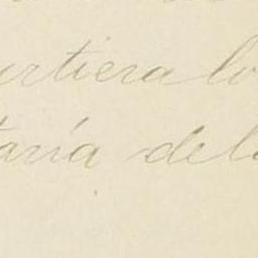 urtiera lo
taría de la